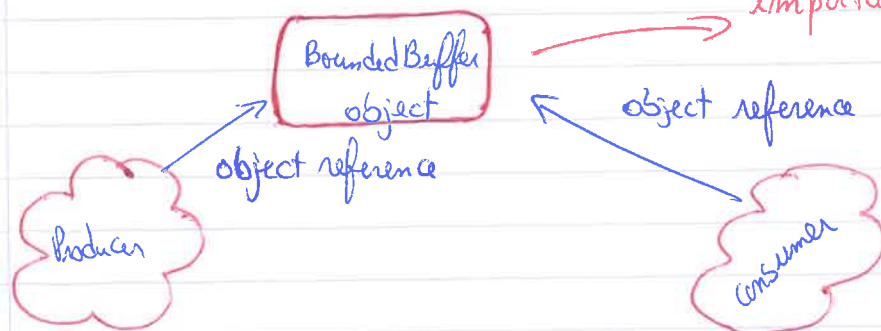 BoundedBuffer
object
object reference
object reference
Producer
consumer